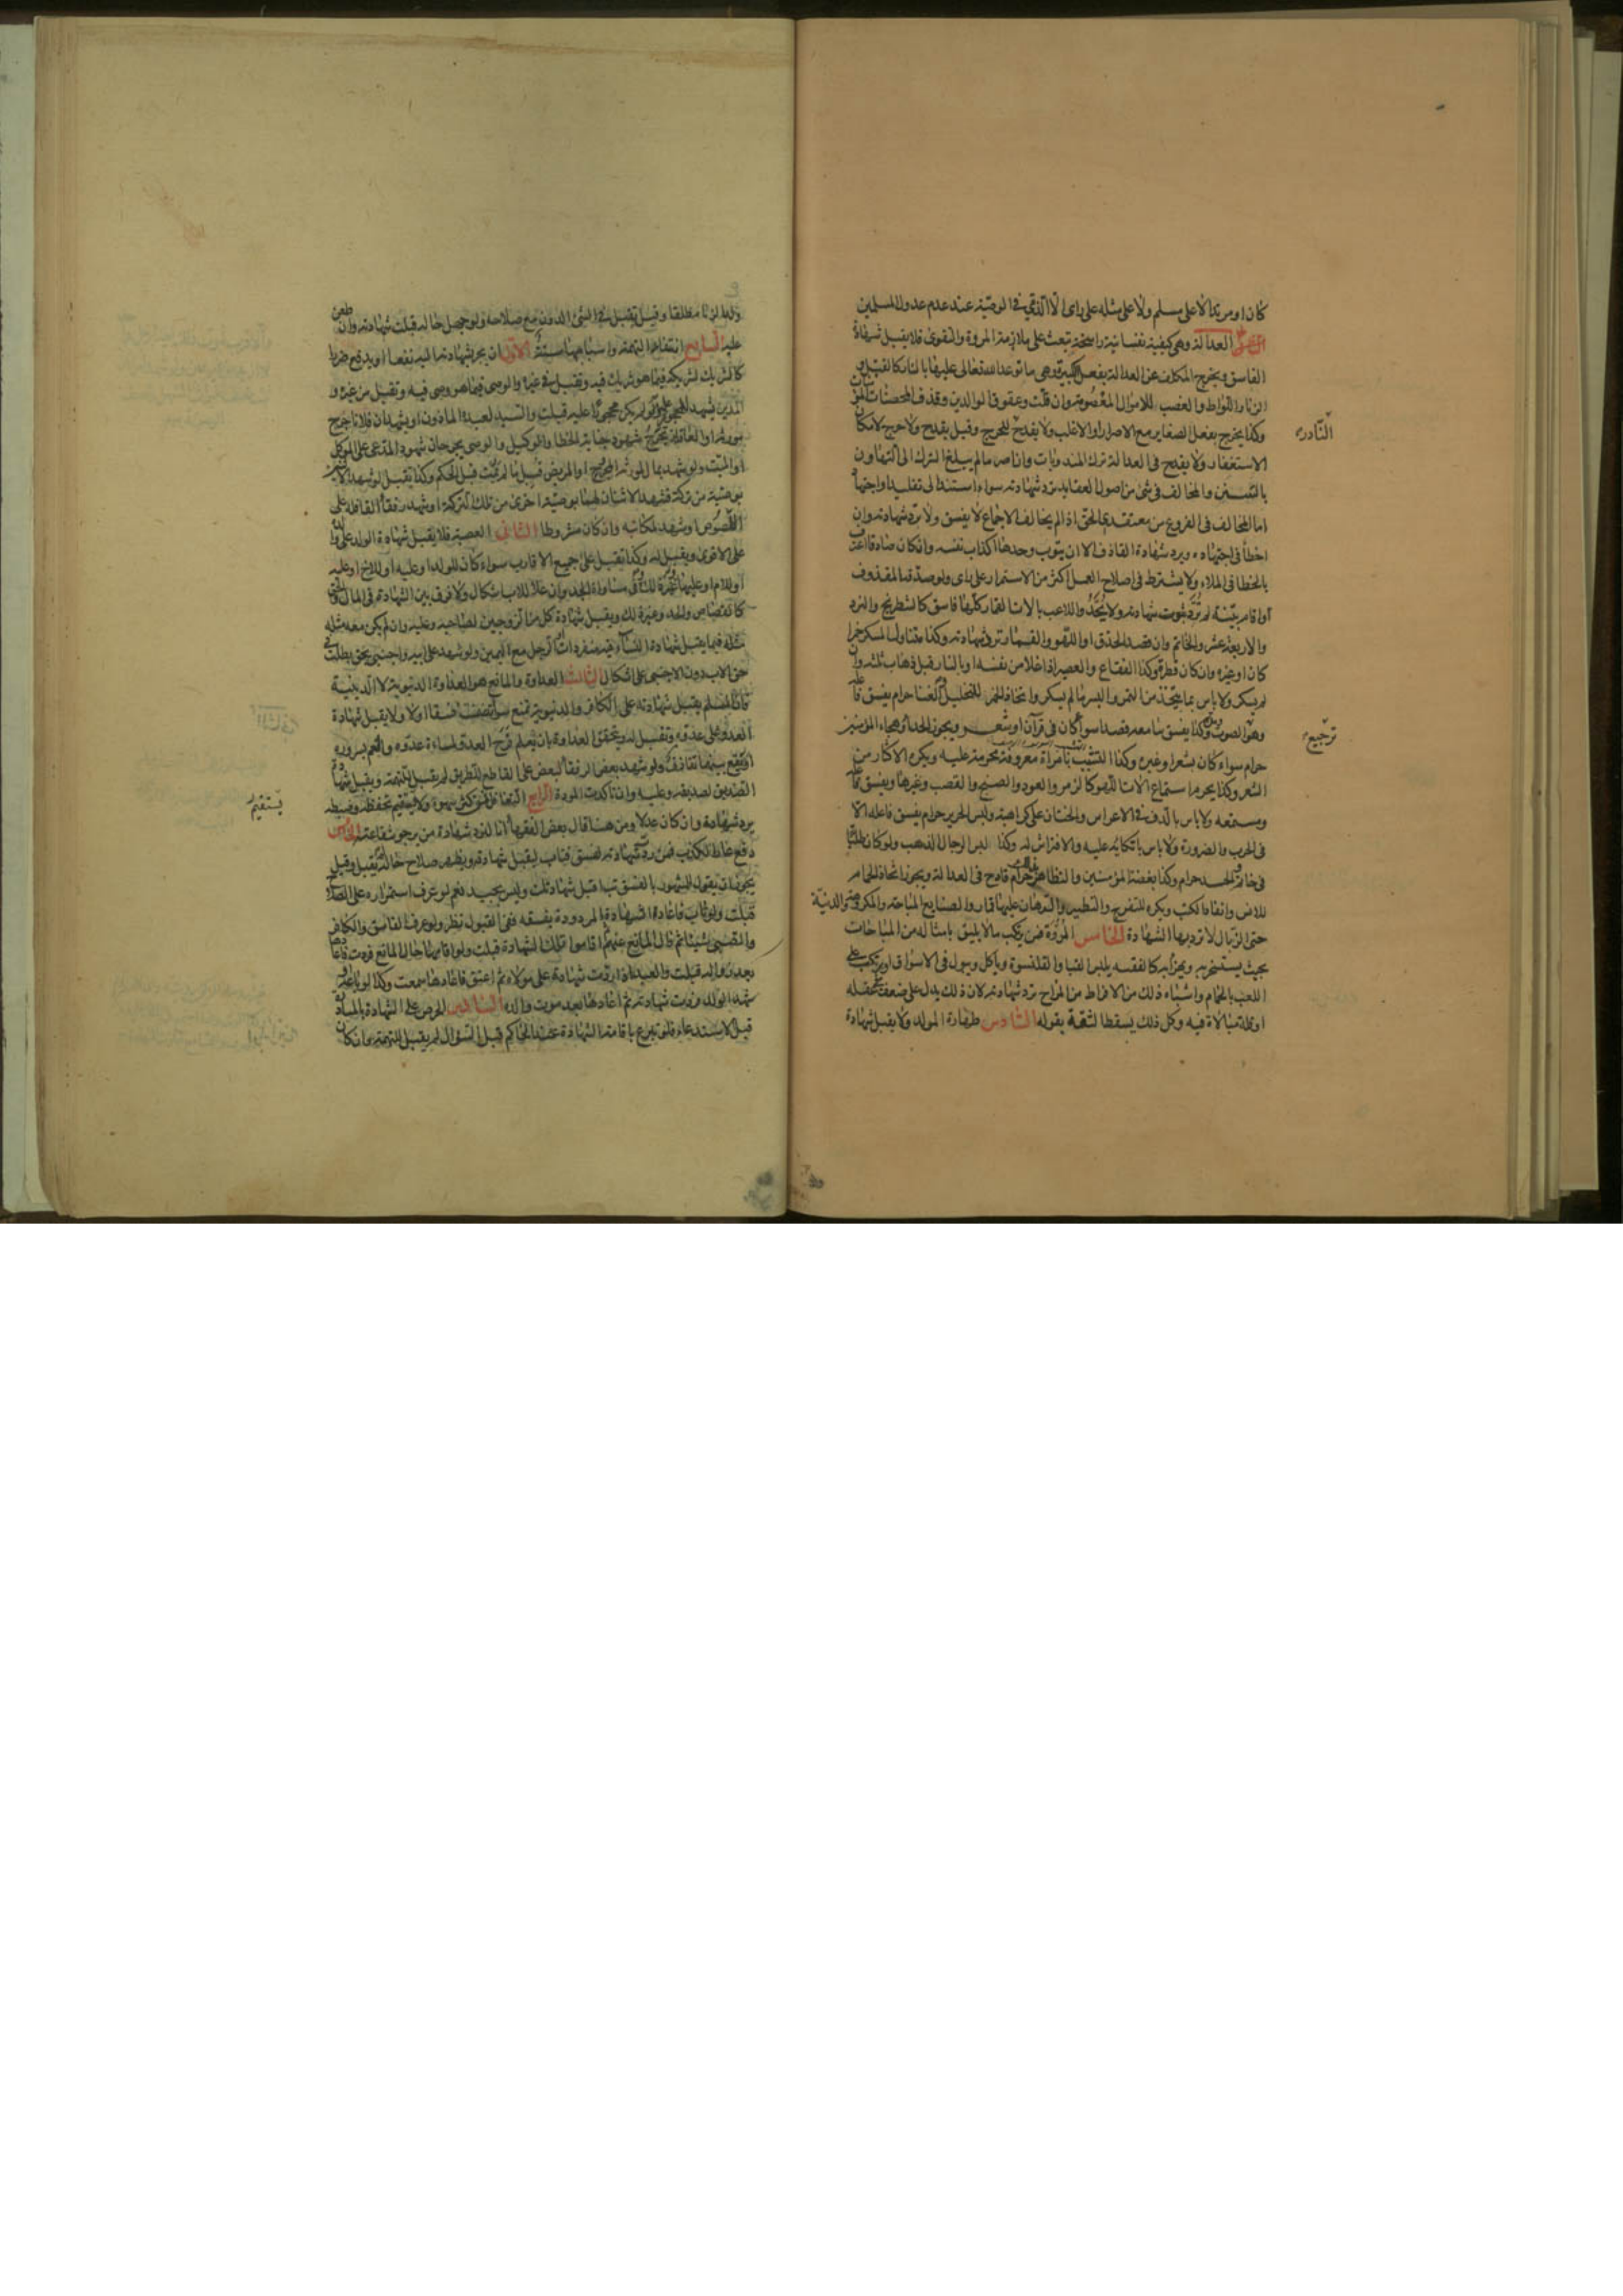 كان او مرتدا لا على مسلم ولا على مثله على راى الا الذمي في الوصية عند عدم عدول المسلمين
الرابع العدالة وهي كيفية نفسانية راسخة تبعث على ملازمة المروة والتقوى فلا يقبل شهادة
الفاسق ويخرج المكلف عن العدالة بفعل الكبيرة وهي ما توعد الله تعالى عليها بالنار كالقتل و
الزنا واللواط والغصب للاموال المعصومة وان قلت وعقوق الوالدين وقذف المحصنات المؤمنات
وكذا يخرج بفعل الصغاير مع الاصرار او الاغلب ولا يقدح للحرج وقيل يقدح ولا حرج لامكان
النادرة
الاستغفار ولا يقدح في العدالة ترك المندوبات وان اصر ما لم يبلغ الترك الى التهاون
بالسنن والمخالف في شئ من اصول العقايد ترد شهادته سواء استند الى تقليد او اجتهاد
اما المخالف في الفروع من معتقدي الحق اذا لم يخالف الاجماع لا يفسق ولا ترد شهادته وان
اخطأ في اجتهاده ويرد شهادة القاذف الا ان يتوب وحدها اكذاب نفسه وان كان صادقا اعترف
بالخطا في الملاء ولا يشترط في اصلاح العمل اكثر من الاستمرار على راى ولو صدقه المقذوف
او اقام بينة لم ترد شهادته ولا يحد واللاعب بالات القمار كلها فاسق كالشطرنج والنرد
والاربعة عشر والخاتم وان قصد الحذق او اللهو او القمار ترد شهادته وكذا متناول المسكر خمرا
كان او غيره وان كان قطرة وكذا الفقاع والعصير اذا غلا من نفسه او بالنار قبل ذهاب ثلثيه وان
لم يسكر ولا باس بما يتخذ من التمر والبسر ما لم يسكر واتخاذ الخمر للتخليل والغنا حرام يفسق فاعله
وهو الصوت وكذا يفسق سامعه قصدا سواء كان في قرآن او شعر ويجوز الحداء وهجاء المؤمنين
ترجيع
حرام سواء كان بشعر او غيره وكذا التشبيب بامرأة معروفة محرمة عليه ويكره الاكثار من
الشعر وكذا يحرم استماع الات اللهو كالزمر والعود والصنج والقصب وغيرها ويفسق فاعله
ومستمعه ولا باس بالدف في الاعراس والختان على كراهية ولبس الحرير حرام يفسق فاعله الا
في الحرب والضرورة ولا باس باتكائه عليه والافتراش له وكذا لبس الرجال الذهب ولو كان طليا
في خاتم والحسد حرام وكذا بغضة المؤمنين والتظاهر بذلك قادح في العدالة ويجوز اتخاذ الحمام
للانس وانفاذ الكتب ويكره للتفرج والتطيير والرهان عليها قمار والصنايع المباحة والمكروهة والدنية
حتى الزبال لا ترد بها الشهادة الخامس المروة فمن يرتكب ما لا يليق بامثاله من المباحات
بحيث يستسخر به ويهزأ به كالفقيه يلبس القبا والقلنسوة وياكل ويبول في الاسواق او يرتكب على
اللعب بالحمام واشباه ذلك من الافراط من المزاح ترد شهادته لان ذلك يدل على ضعف عقله
او قلة مبالاة فيه وكل ذلك يسقط الثقة بقوله السادس طهارة المولد ولا يقبل شهادة
ولد الزنا مطلقا وقيل تقبل في الشئ الدون مع صلاحه ولو جهل حاله قبلت شهادته وان طعن
عليه السابع انتفاء التهمة واسبابها ستة الاول ان يجر بشهادته اليه نفعا او يدفع ضررا
كالشريك لشريكه فيما هو شريك فيه وتقبل في غيره والوصي فيما هو وصي فيه وتقبل من غيره و
المدين يشهد للمحجور عليه ولو لم يكن محجورا عليه قبلت والسيد لعبده الماذون او يشهد ان فلانا جرح
مورثه او العاقلة بجرح شهود جناية الخطا والوكيل والوصي بجرحان شهود المدعى على الموكل
او الميت ولو شهد بمال لمورثه المجروح او المريض قبل ما لم يمت قبل الحكم وكذا يقبل لو شهدا لاثنين
بوصية من تركة فشهد الاثنان لهما بوصية اخرى من تلك التركة او شهد رفقا القافلة على
اللصوص او شهد لمكاتبه وان كان مشروطا الثاني العصبة فلا يقبل شهادة الولد على والده
على الاقوى ويقبل له وكذا تقبل على جميع الاقارب سواء كان للولد او عليه او للاخ او عليه
او للام او عليها وفي مساواة الجد وان علا للاب اشكال ولا فرق بين الشهادة في المال والحق
كالقصاص والحد وغير ذلك ويقبل شهادة كل من الزوجين لصاحبه وعليه وان لم يكن معه مثله
مثله فيما يقبل شهادة النساء فيه منفردات او الرجل مع اليمين ولو شهد على ابيه واجنبي بحق بطلت في
حق الاب دون الاجنبي على اشكال الثالث العداوة والمانع هو العداوة الدنيوية لا الدينية
فان المسلم يقبل شهادته على الكافر والدنيوية تمنع سواء تضمنت فسقا او لا ولا يقبل شهادة
العدو على عدوه وتقبل له ويتحقق العداوة بان يعلم فرح العدو لمساءة عدوه والغم بسروره
او يقع بينهما تقاذف ولو شهد بعض الرفقا لبعض على القاطع للطريق لم يقبل للتهمة ويقبل شهادة
الصديق لصديقه وعليه وان تاكدت المودة الرابع التغافل فمن كثر سهوه ولا يستقيم تحفظه وضبطه
يستقيم
يرد شهادة وان كان عدلا ومن هنا قال بعض الفقهاء انا لنرد شهادة من نرجو شفاعته الخامس
دفع عار الكذب فمن ردت شهادته لفسق فتاب ليقبل شهادته ويظهر صلاح حاله لم يقبل وقيل
يجوز ان يقول للمشهور بالفسق تب اقبل شهادتك وليس بجيد نعم لو عرف استمراره على الصلاح
قبلت ولو تاب فاعاد الشهادة المردودة بفسقه ففي القبول نظر ولو عرف الفاسق والكافر
والصبي شيئا ثم زال المانع عنهم اقاموا تلك الشهادة قبلت ولو اقاموها حال المانع فردت فاعادها
بعد زواله قبلت والعبد اذا ردت شهادة على مولاه ثم اعتق فاعادها سمعت وكذا لو
شهد الولد فردت شهادته ثم اعادها بعد موت والده السادس الحرص على الشهادة بالمبادرة
قبل الاستدعاء فلو تبرع باقامة الشهادة عند الحاكم قبل السؤال لم يقبل للتهمة وان كان